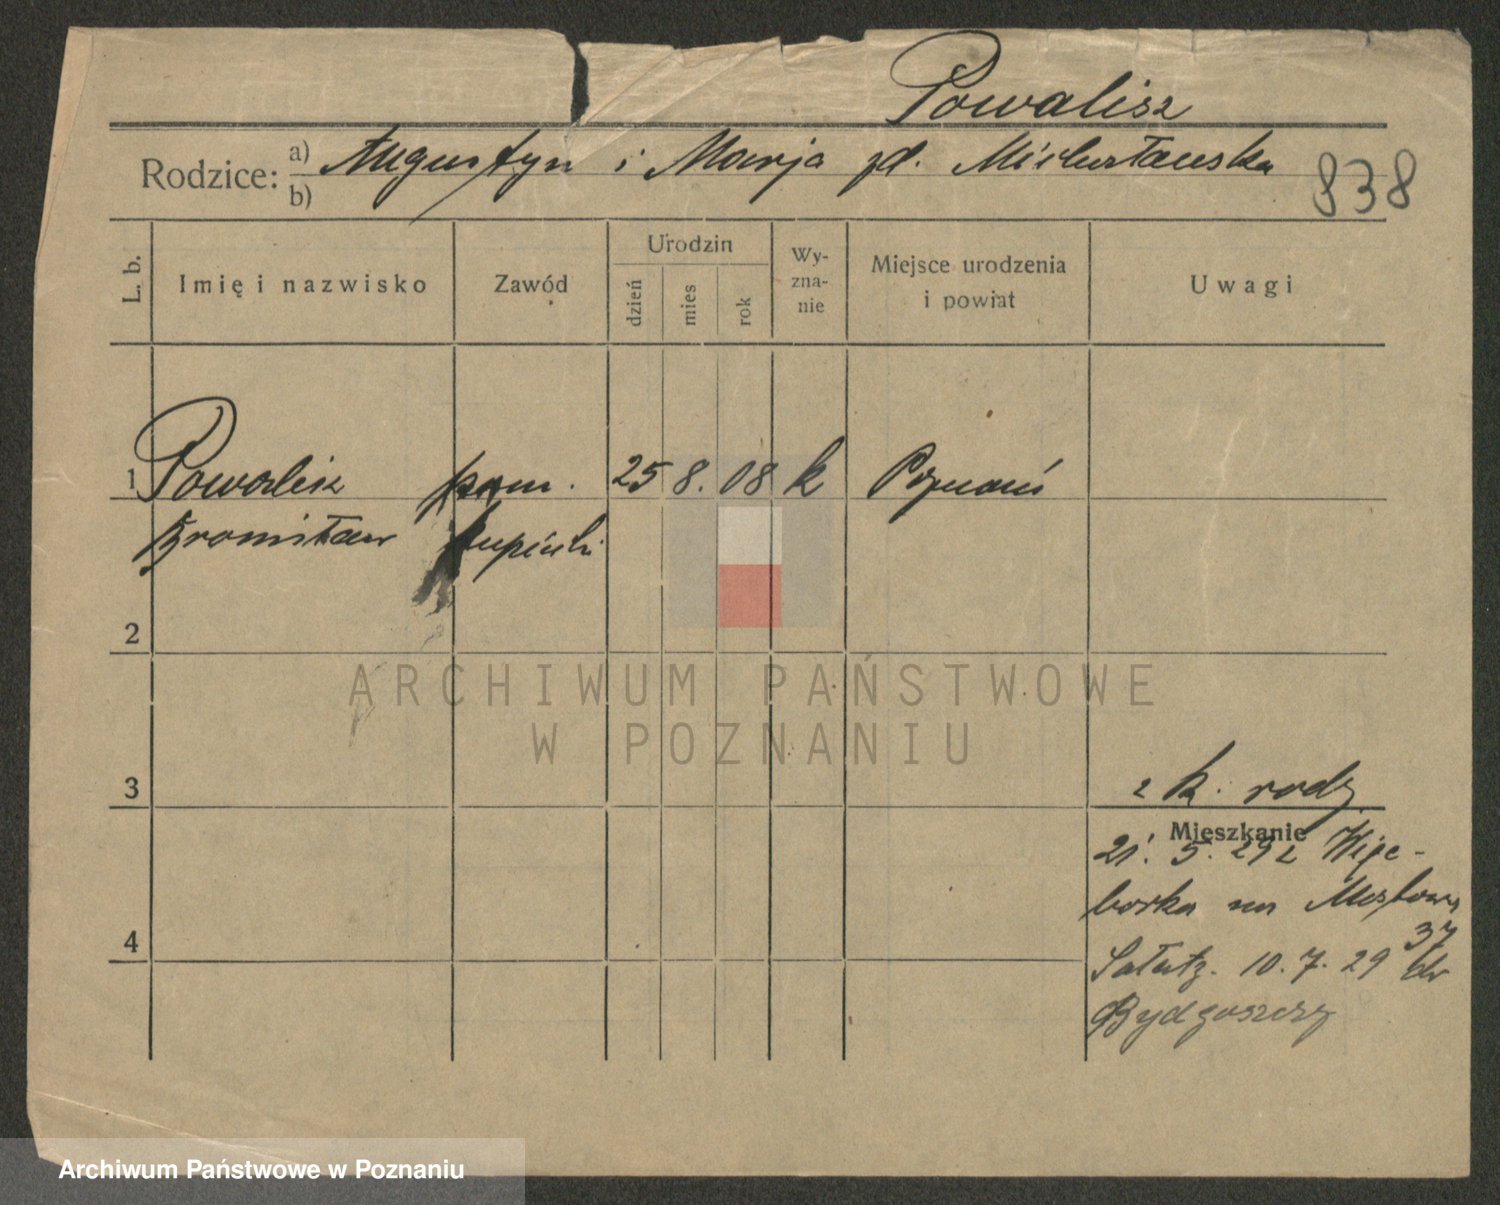 Powalisz
Rodzice: a) Augustyn i Marja zd.
b)
838
L. b.
Imię i nazwisko
Zawód
Urodzin
dzień
mies
rok
Wy-
zna-
nie
Miejsce urodzenia
i powiat
Uwagi
1 Powalisz pom. 25 8. 08 k Poznań
Bronisław kupiecki
2
ARCHIWUM PAŃSTWOWE
W POZNANIU
3
z k. rodz.
Mieszkanie
21. 5. 29 z Węge-
borka na Mostowa
37
4
10. 7. 29 do
Bydgoszczy
Archiwum Państwowe w Poznaniu